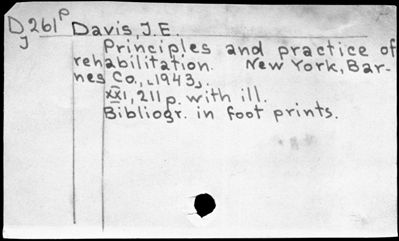 D261P Davis, J.E.
J Principles and practice of
rehabilitation. New York, Bar-
nes Co., [1943].
XXI, 211 p. with ill.
Bibliogr. in foot prints.